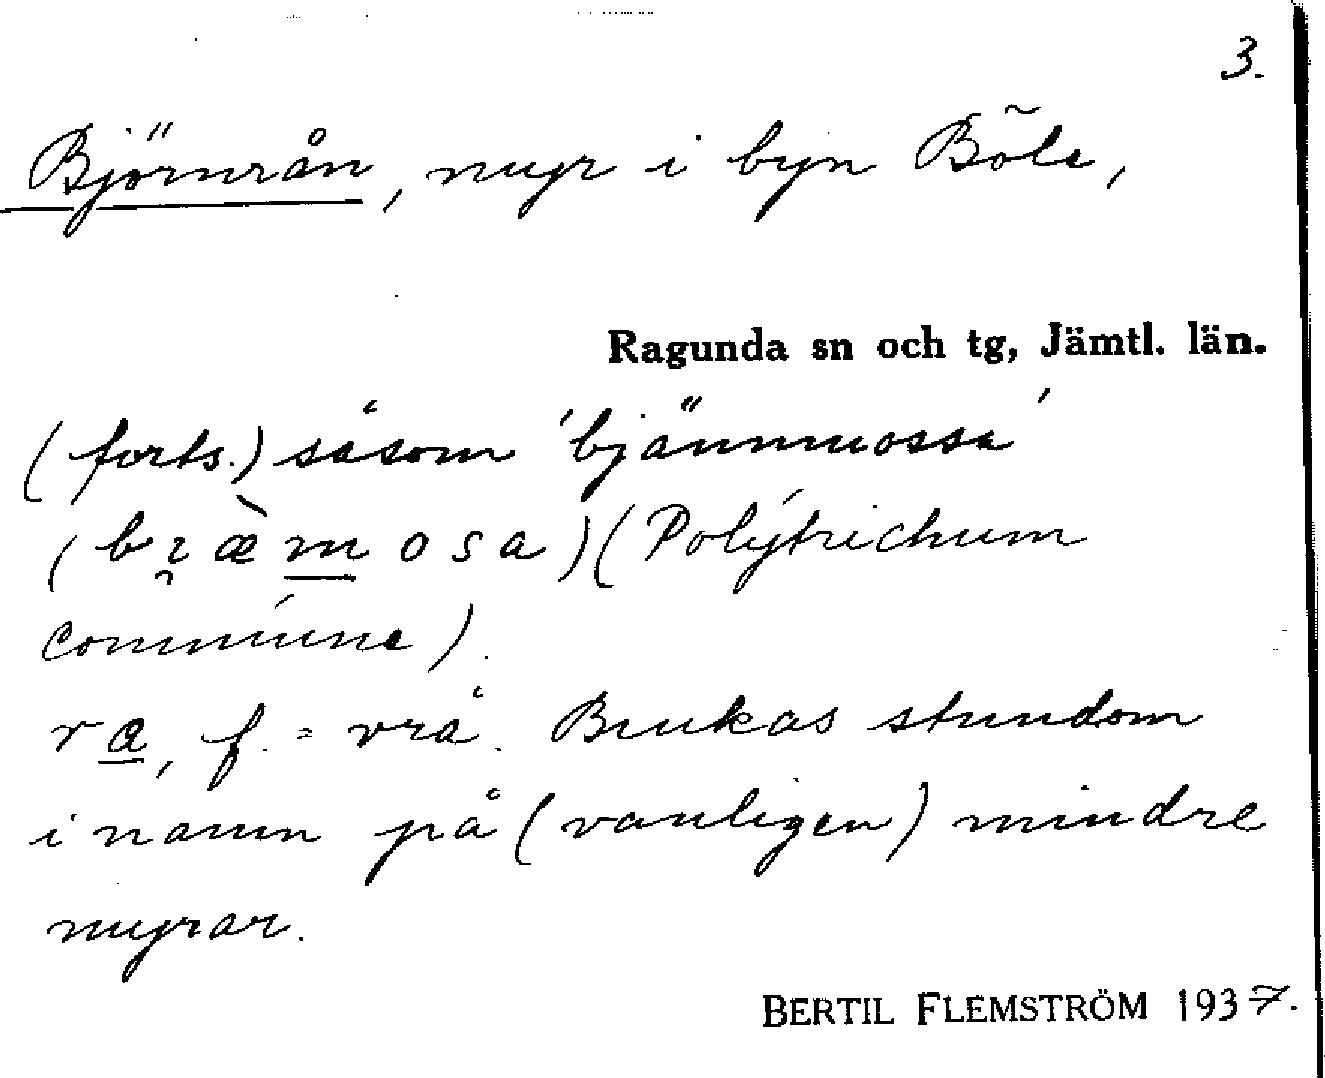 3.
Björnrån, myr i byn Böle,
Ragunda sn och tg, Jämtl. län.
(forts.) såsom 'bjännmossa'
(bɿæ̀m̲osa) (Polýtrichum
commúne).
ra̲, f. = vrå. Brukas stundom
i namn på (vanligen) mindre
myrar.
BERTIL FLEMSTRÖM 1937.